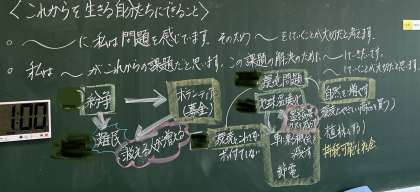 ＜これからを生きる自分たちにできること＞
○ 〜に私は問題を感じています。そのため〜をしていくことが大切だと考えます。
○ 私は〜がこれからの課題だと思います。この課題の解決のために〜していきたいです。
〜していくことが大切だと思います。
1:00
紛争
難民
ボランティア
(募金)
消える人が増える
環境にやさしい
ポイすてしない
環境問題
地球温暖化
車の
減らす
節電
自然を増やす
植林を行う
持続可能な社会